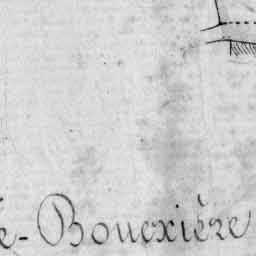 e-Bouexière